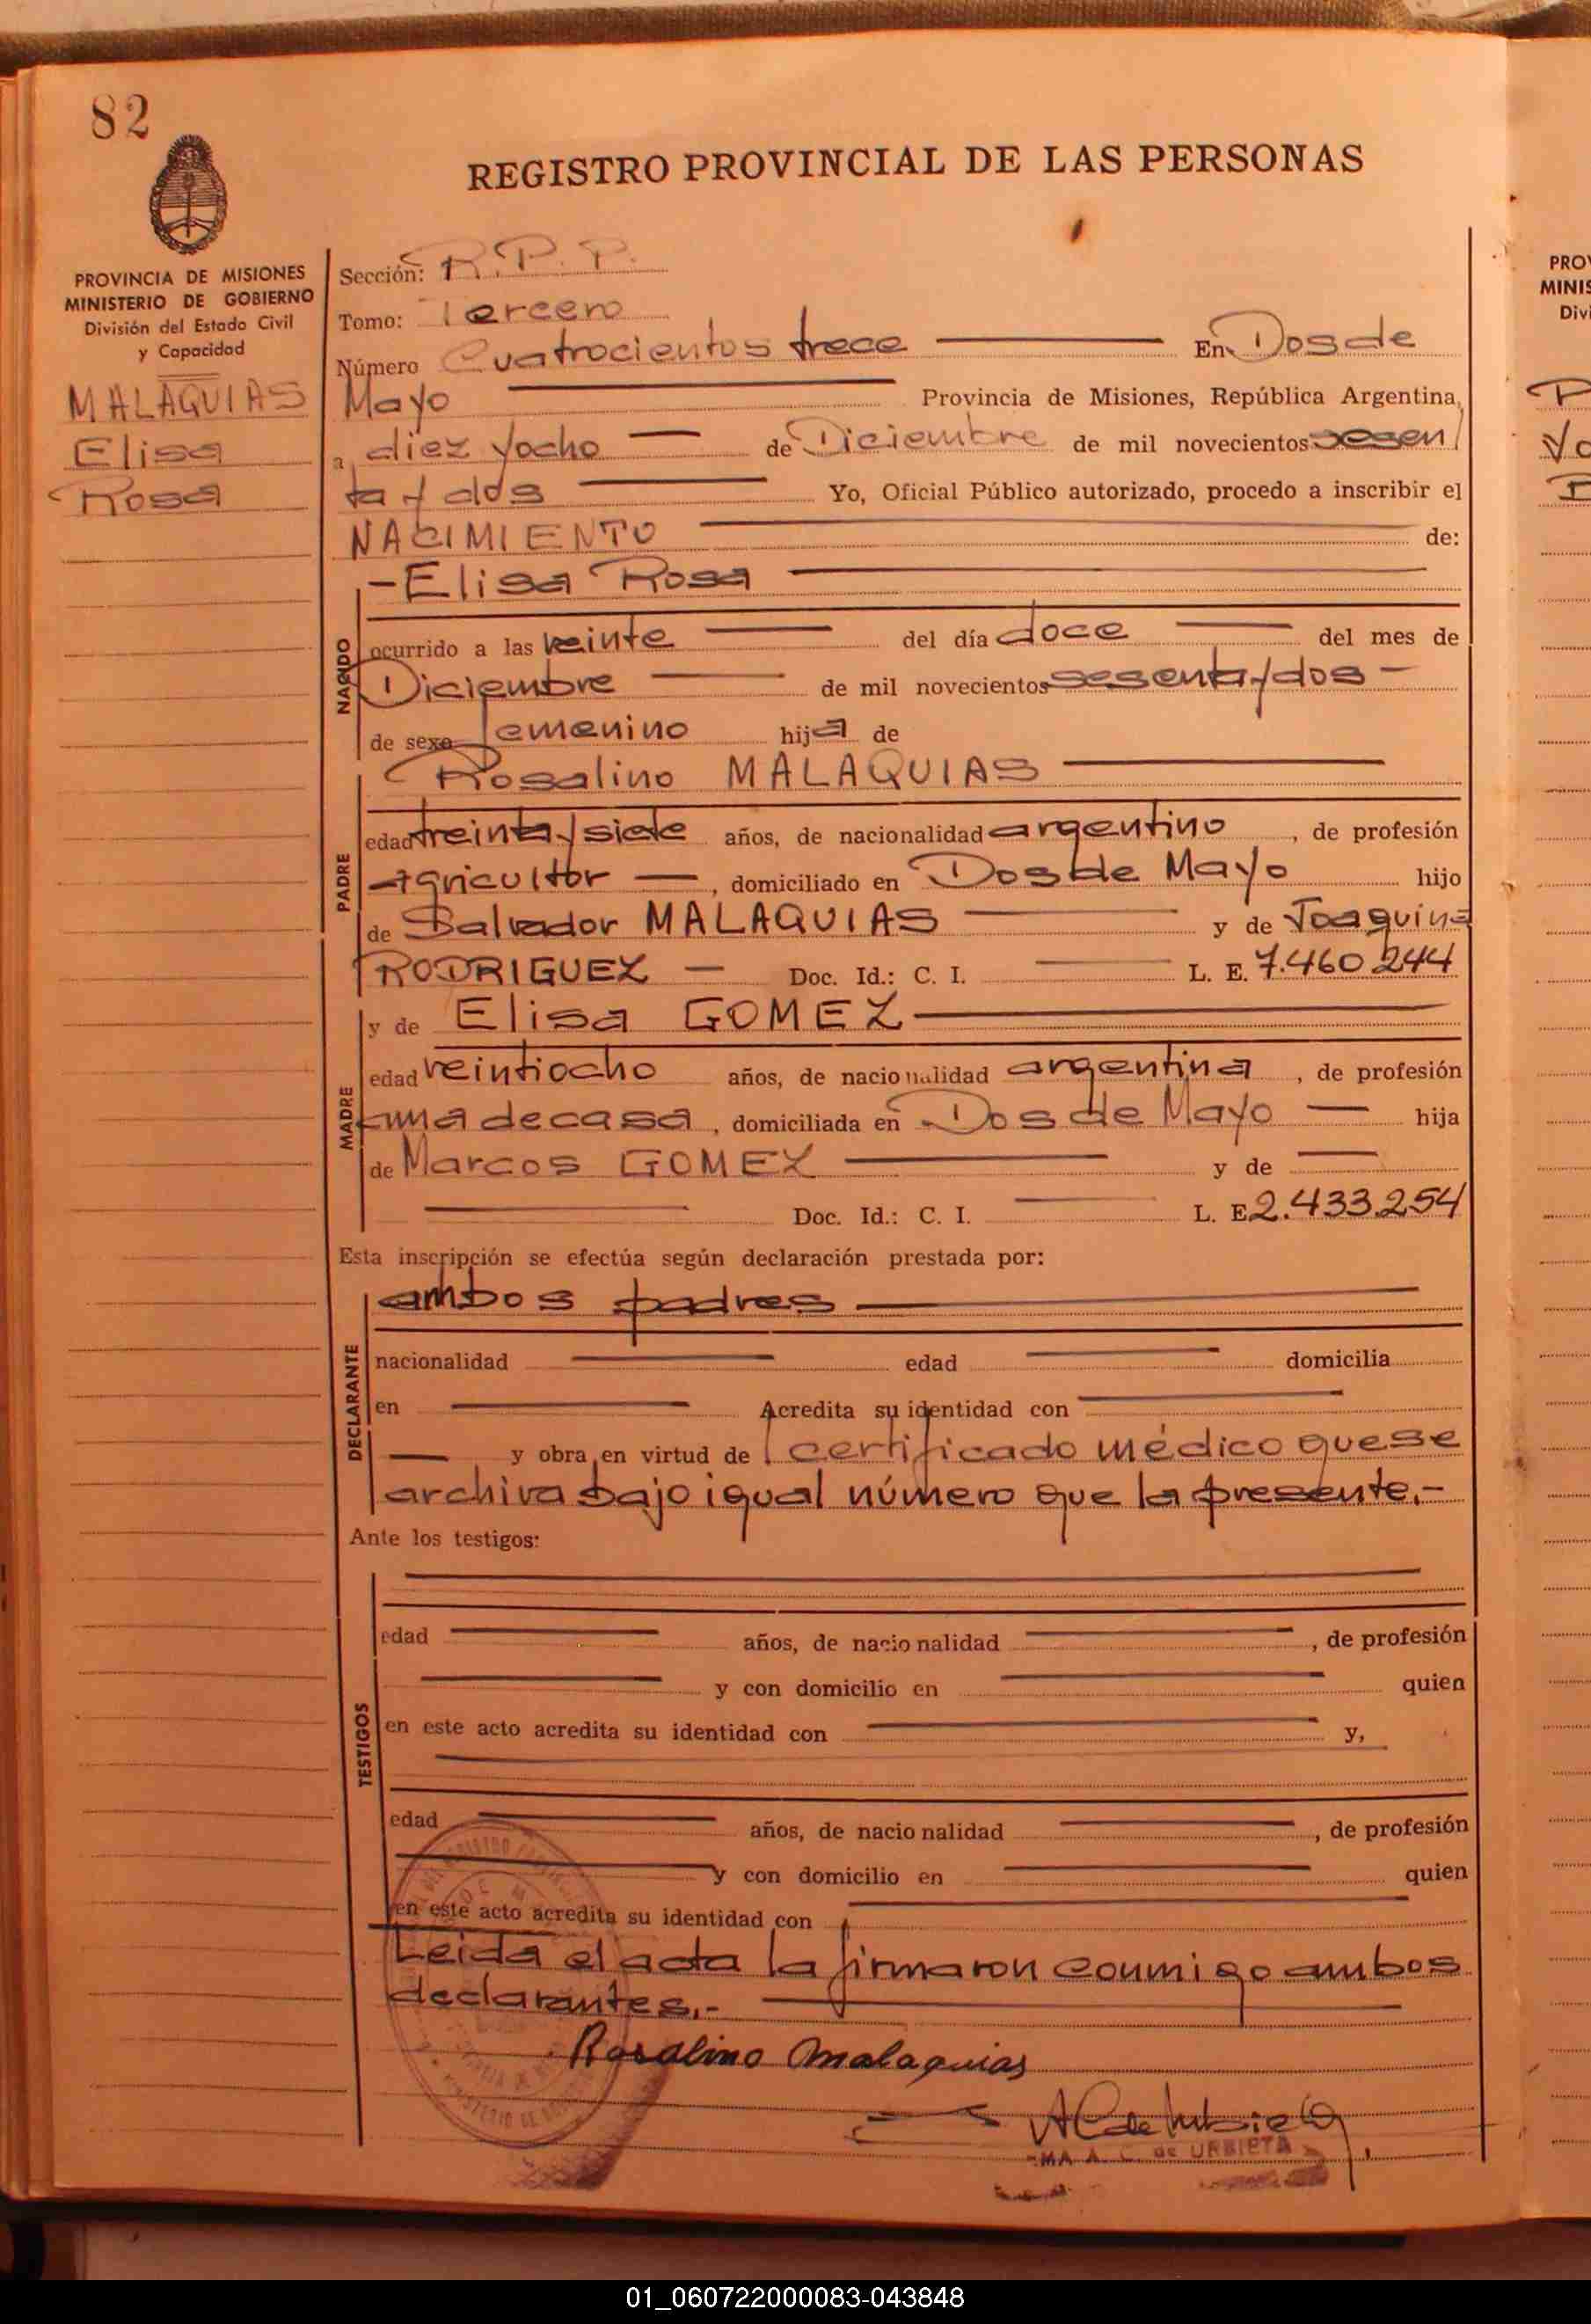 82
REGISTRO PROVINCIAL DE LAS PERSONAS
PROVINCIA DE MISIONES
MINISTERIO DE GOBIERNO
División del Estado Civil
y Capacidad
MALAQUIAS
Elisa
Rosa
Sección: R. P. P.
Tomo: Tercero
Número Cuatrocientos trece En Dos de
Mayo Provincia de Misiones, República Argentina,
a diez y ocho de Diciembre de mil novecientos sesen
ta y dos Yo, Oficial Público autorizado, procedo a inscribir el
NACIMIENTO de:
-Elisa Rosa
NACIDO
ocurrido a las veinte del día doce del mes de
Diciembre de mil novecientos sesenta y dos -
de sexo femenino hija de
Rosalino MALAQUIAS
PADRE
edad treinta y siete años, de nacionalidad argentino, de profesión
agricultor, domiciliado en Dos de Mayo hijo
de Salvador MALAQUIAS y de Joaquina
RODRIGUEZ Doc. Id.: C. I. L. E. 7.460.244
y de Elisa GOMEZ
MADRE
edad veintiocho años, de nacionalidad argentina, de profesión
ama de casa, domiciliada en Dos de Mayo hija
de Marcos GOMEZ y de
Doc. Id.: C. I. L. E 2.433.254
Esta inscripción se efectúa según declaración prestada por:
ambos padres
DECLARANTE
nacionalidad edad domicilia
en Acredita su identidad con
y obra en virtud de certificado médico que se
archiva bajo igual número que la presente.-
Ante los testigos:
TESTIGOS
edad años, de nacionalidad, de profesión
y con domicilio en quien
en este acto acredita su identidad con y,
edad años, de nacionalidad, de profesión
y con domicilio en quien
en este acto acredita su identidad con
Leida el acta la firmaron conmigo ambos
declarantes.-
Rosalino Malaquias
A. C. de URBIETA
PRO
MINIS
Div
01_060722000083-043848